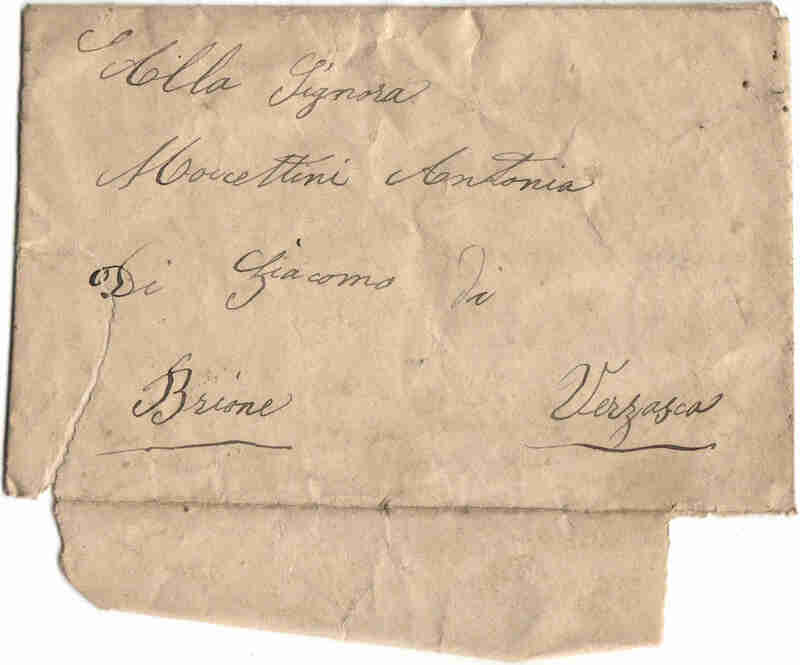 Alla Signora
Morcettini Antonia
Di Giacomo di
Brione Verzasca